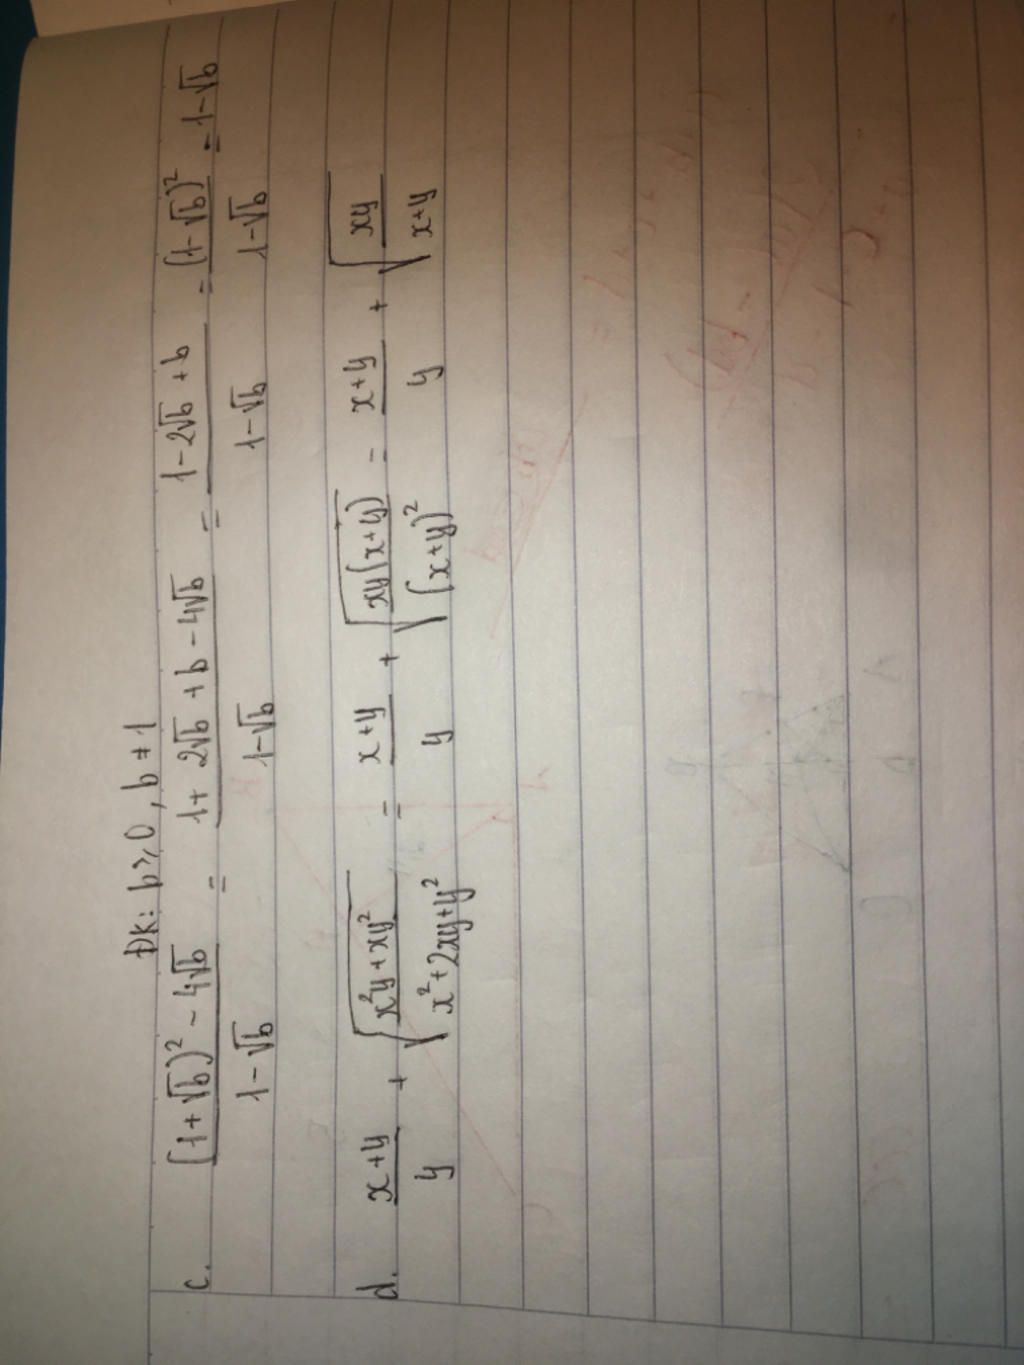 ĐK: b ⩾ 0, b ≠ 1
c. \frac{(1+√b)² - 4√b}{1-√b} = \frac{1 + 2√b + b - 4√b}{1-√b} = \frac{1 - 2√b + b}{1-√b} = \frac{(1-√b)²}{1-√b} = 1-√b
d. \frac{x+y}{y} + \sqrt{\frac{x²y + xy²}{x² + 2xy + y²}} = \frac{x+y}{y} + \sqrt{\frac{xy(x+y)}{(x+y)²}} = \frac{x+y}{y} + \sqrt{\frac{xy}{x+y}}